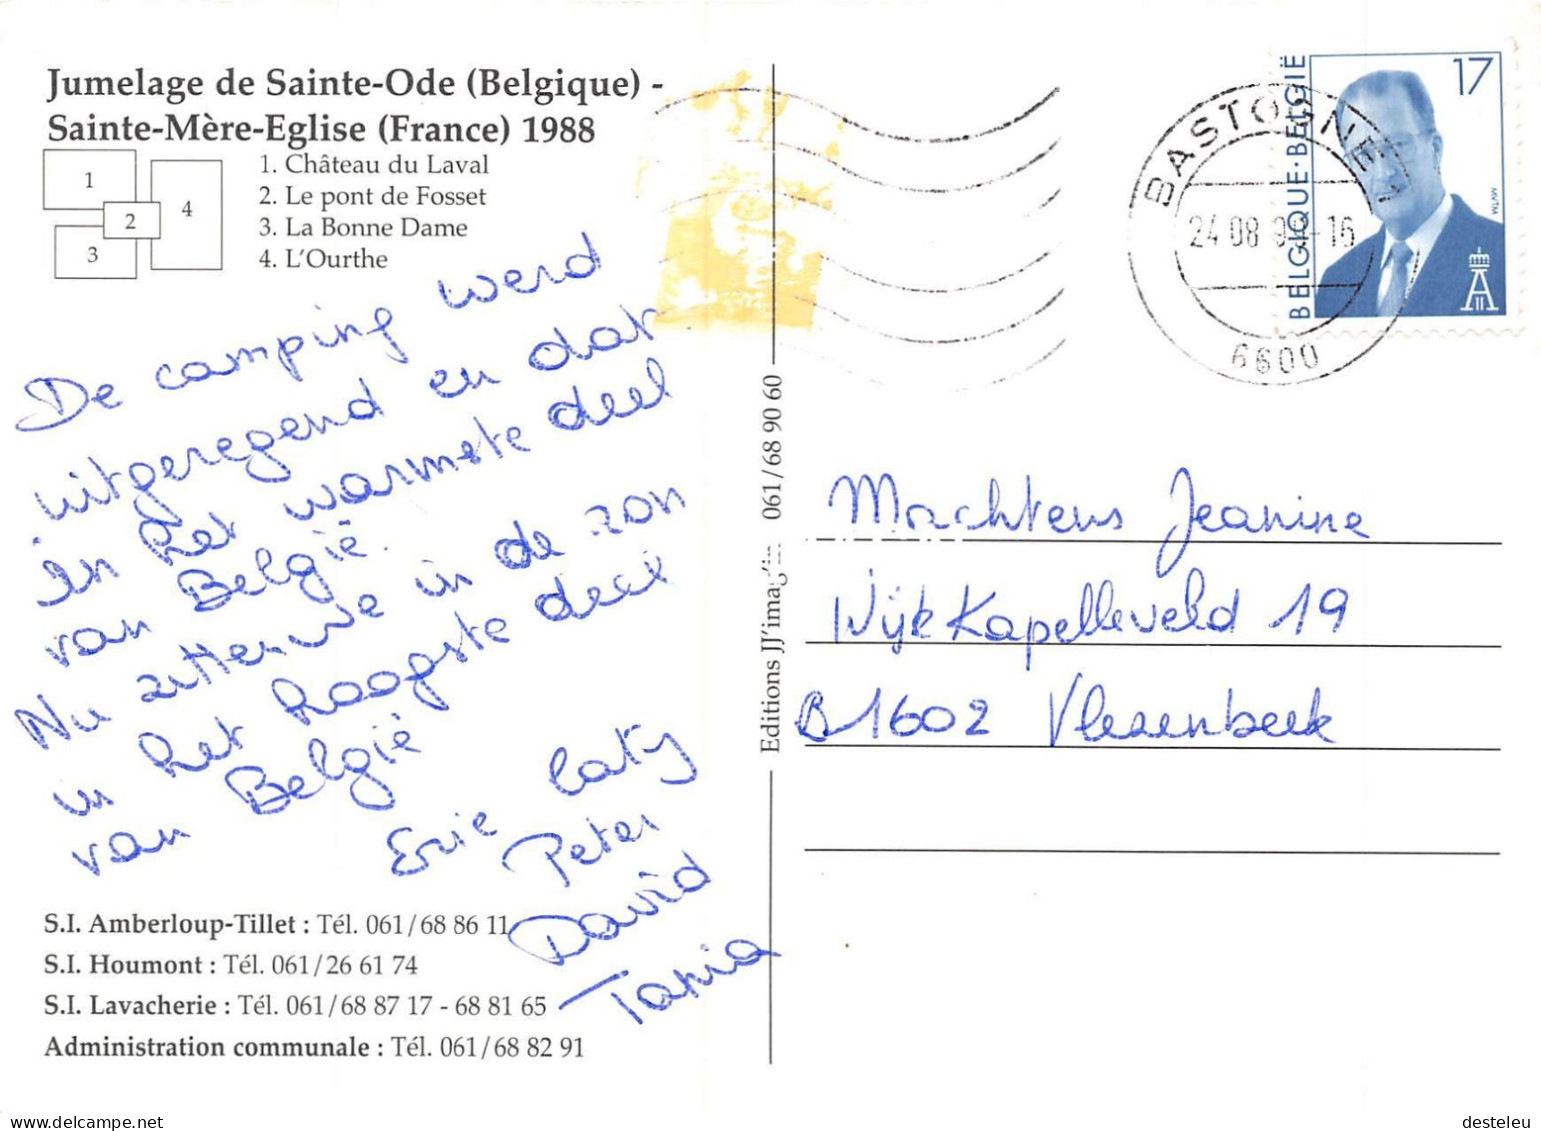 Jumelage de Sainte-Ode (Belgique) -
Sainte-Mère-Eglise (France) 1988
1
2
3
4
1. Château du Laval
2. Le pont de Fosset
3. La Bonne Dame
4. L'Ourthe
De camping werd
uitgeregend en dat
in het warmste deel
van België.
Nu zitten we in de zon
in het hoogste deel
van België
Eric Caty
Peter
David
Tania
S.I. Amberloup-Tillet : Tél. 061/68 86 11
S.I. Houmont : Tél. 061/26 61 74
S.I. Lavacherie : Tél. 061/68 87 17 - 68 81 65
Administration communale : Tél. 061/68 82 91
Editions JJ'imag'in 061/68 90 60
BASTOGNE
24 08 9 -16
6600
BELGIQUE·BELGIË
17
MVTM
Machtens Jeanine
Wijk Kapelleveld 19
B1602 Vlezenbeek
www.delcampe.net
desteleu